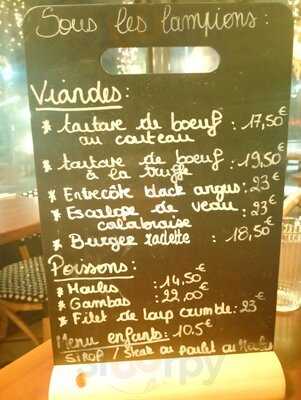 Sous les lampions :
Viandes :
* tartare de boeuf : 17,50€
au couteau
* tartare de boeuf : 19,50€
à la truffe
* Entrecôte black angus : 23€
* Escalope de veau : 23€
calabraise
* Burger raclette : 18,50€
Poissons :
* Moules : 14,50€
* Gambas : 22,00€
* Filet de loup crumble : 23€
Menu enfants : 10.5€
SIROP / Steak ou poulet ou Moules
sluurpy